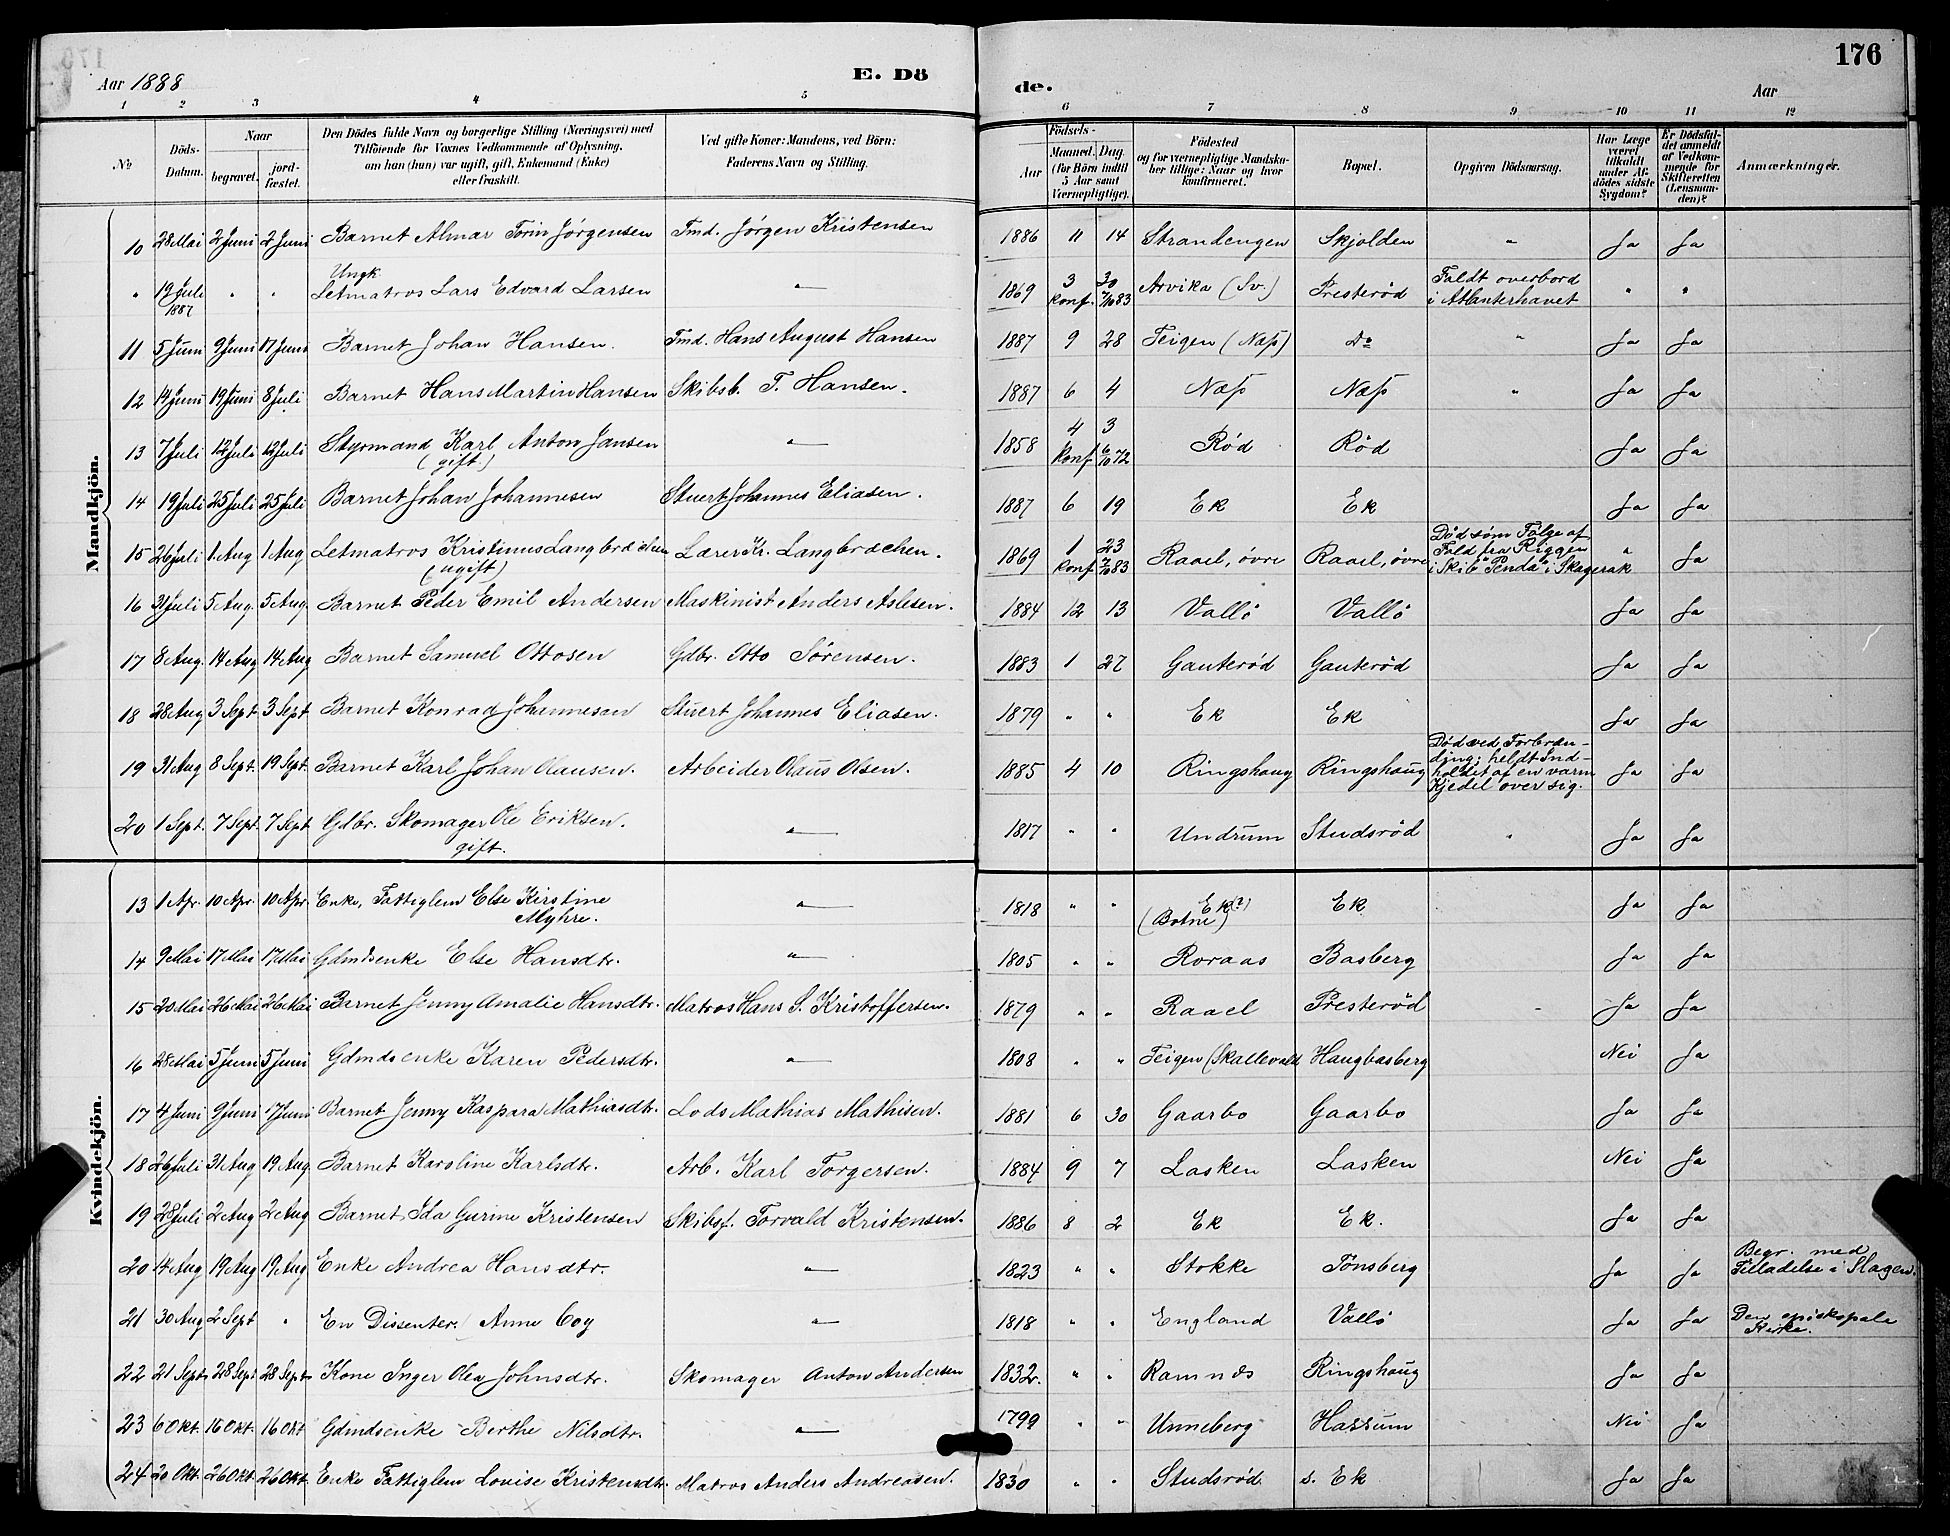 176
Aar 1888
E. Dö
de.
Aar
1 2 3 4 5 6 7 8 9 10 11 12
№
Döds-
Datum.
Naar
begravet.
jord-
fæstet.
Den Dödes fulde Navn og borgerlige Stilling (Næringsvei) med
Tilföiende for Voxnes Vedkommende af Oplysning,
om han (hun) var ugift, gift, Enkemand (Enke)
eller fraskilt.
Ved gifte Koner: Mandens, ved Börn:
Faderens Navn og Stilling.
Födsels-
Aar
Maaned. Dag.
(for Börn indtil
5 Aar samt
Værnepligtige).
Födested
og for værnepligtige Mandska-
ber tillige: Naar og hvor
konfirmeret.
Bopæl.
Opgiven Dödsaarsag.
Har Læge
været
tilkaldt
under Af-
dödes sidste
Sygdom?
Er Dödsfal-
det anmeldt
af Vedkom-
mende for
Skifteretten
(Lensman-
den)?
Anmærkninger.
Mandkjön.
10 28 Mai 2 Juni 2 Juni Barnet Almar Torin Jørgensen Tmd. Jörgen Kristensen 1886 11 14 Strandengen Skjolden " Ja Ja
" 19 Juli 1887 " " Ungk. Letmatros Lars Edvard Larsen " 1869 3 30 Konf. 7/10 83 Arvika (Sv.) Presterød Faldt overbord i Atlanterhavet " "
11 5 Juni 9 Juni 17 Juni Barnet Johan Hansen. Tmd. Hans August Hansen 1887 9 28 Teigen (Næs) Do " Ja Ja
12 14 Juni 19 Juni 8 Juli Barnet Hans Martin Hansen Skibsb. T. Hansen. 1887 6 4 Næs Næs " Ja Ja
13 7 Juli 12 Juli 12 Juli Styrmand Karl Anton Jansen (gift.) " 1858 4 3 Konf. 6/10 72 Rød Rød Ja Ja
14 19 Juli 25 Juli 25 Juli Barnet Johan Johannesen Stuert Johannes Eliasen. 1887 6 19 Ek Ek Ja Ja
15 26 Juli 1 Aug 1 Aug Letmatros Kristinus Langbrachen (ugift) Lærer Kr. Langbrachen. 1869 1 23 Konf 7/10 83 Raael, övre Raael, övre Död som Fölge af Fald fra Riggen i Skib "Penda" i Skagerak " Ja
16 31 Juli 5 Aug. 5 Aug. Barnet Peder Emil Andersen Maskinist Anders Aslesen. 1884 12 13 Vallö Vallö Ja Ja
17 8 Aug. 14 Aug 14 Aug Barnet Samuel Ottosen Gdbr. Otto Sørensen. 1883 1 27 Gauterød Gauterød Ja Ja
18 28 Aug 3 Sept. 3 Sept Barnet Konrad Johannesen Stuert Johannes Eliasen. 1879 " " Ek Ek Ja Ja
19 31 Aug 8 Sept. 19 Sept. Barnet Karl Johan Olausen. Arbeider Olaus Olsen. 1885 4 10 Ringshaug Ringshaug Død ved Forbræn-ding; heldt Ind-holdet af en varm Kjedel over sig. Ja Ja
20 1 Sept. 7 Sept. 7 Sept Gdbr. Skomager Ole Eriksen. gift. " 1817 " " Undrum Studsrød " Ja Ja
Kvindekjön.
13 1 Apr. 10 Apr. 10 Apr. Enke, Fattiglem Else Kirstine Myhre. " 1818 " " Ek (?) (Botne) Ek Ja Ja
14 9 Mai 17 Mai 17 Mai Gdmdsenke Else Hansdtr. " 1805 " " Roraas Basberg Ja Ja
15 20 Mai 26 Mai 26 Mai Barnet Jenny Amalie Hansdtr. Matros Hans S. Kristoffersen. 1879 " " Raael Presterød Ja Ja
16 28 Mai 5 Juni 5 Juni Gdmdsenke Karen Pedersdtr. " 1808 " " Teigen (Skallevold Haugbasberg Nei Ja
17 4 Juni 9 Juni 17 Juni Barnet Jenny Kaspara Mathiasdtr. Lods Mathias Mathisen. 1881 6 30 Gaarbo Gaarbo Ja Ja
18 26 Juli 31 Aug 19 Aug Barnet Karoline Karlsdtr. Arb. Karl Torgersen. 1884 9 7 Lasken Lasken Nei Ja
19 28 Juli 2 Aug 2 Aug Barnet Ida Gurine Kristensen Skibsf. Torvald Kristensen. 1886 8 2 Ek Ek. Ja Ja
20 14 Aug 19 Aug 19 Aug Enke Andrea Hansdtr. " 1823 " " Stokke Tønsberg Ja Ja Begr. med Tilladelse i Slagen.
21 30 Aug 2 Sept " En Dissenter, Anne Coy " 1818 " " England Vallö Ja Ja Den episkopale Kirke.
22 21 Sept. 28 Sept 28 Sept. Kone Inger Olea Johnsdtr. Skomager Anton Andersen 1832. " " Ramnæs Ringshaug Ja Ja
23 6 Okt. 16 Okt. 16 Okt Gdmdsenke Berthe Nilsdtr. " 1799 " " Unneberg Hassum Nei Ja
24 20 Okt. 26 Okt. 26 Okt. Enke Fattiglem Lovise Kristensdtr. Matros Anders Andreasen. 1830 " Studsrød s. Ek Ja Ja